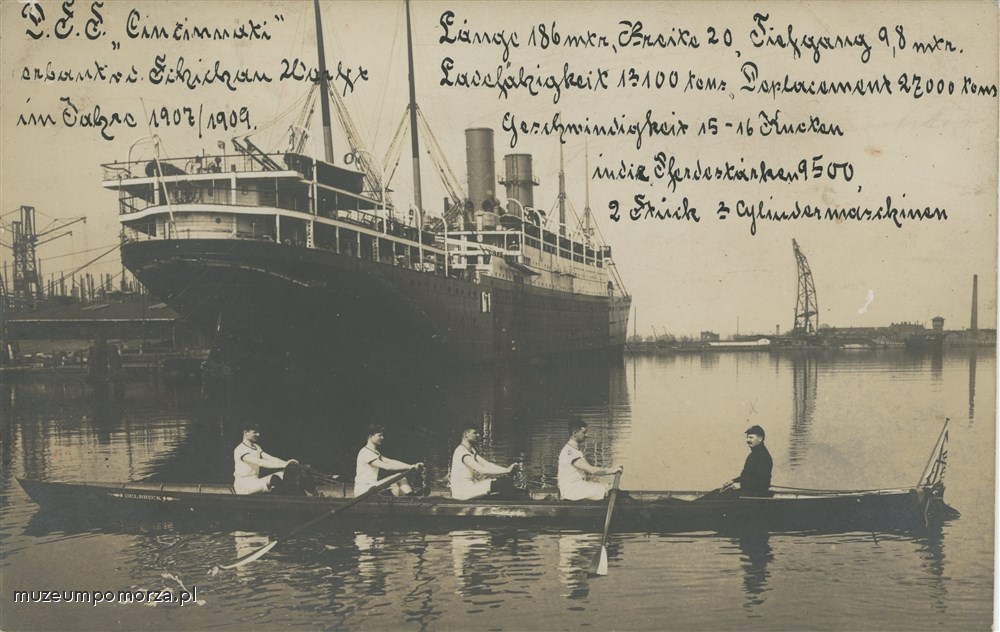 D.S.S. „Cincinnati"
erbaut v. d. Schichau Werft
im Jahre 1907/1909.
Länge 186 mtr., Breite 20, Tiefgang 9,8 mtr.
Ladefähigkeit 13100 tons, Deplacement 27000 tons
Geschwindigkeit 15-16 Knoten
indiz. Pferdestärken 9500,
2 Stück 3 Cylindermaschinen
DELBRÜCK
muzeumpomorza.pl